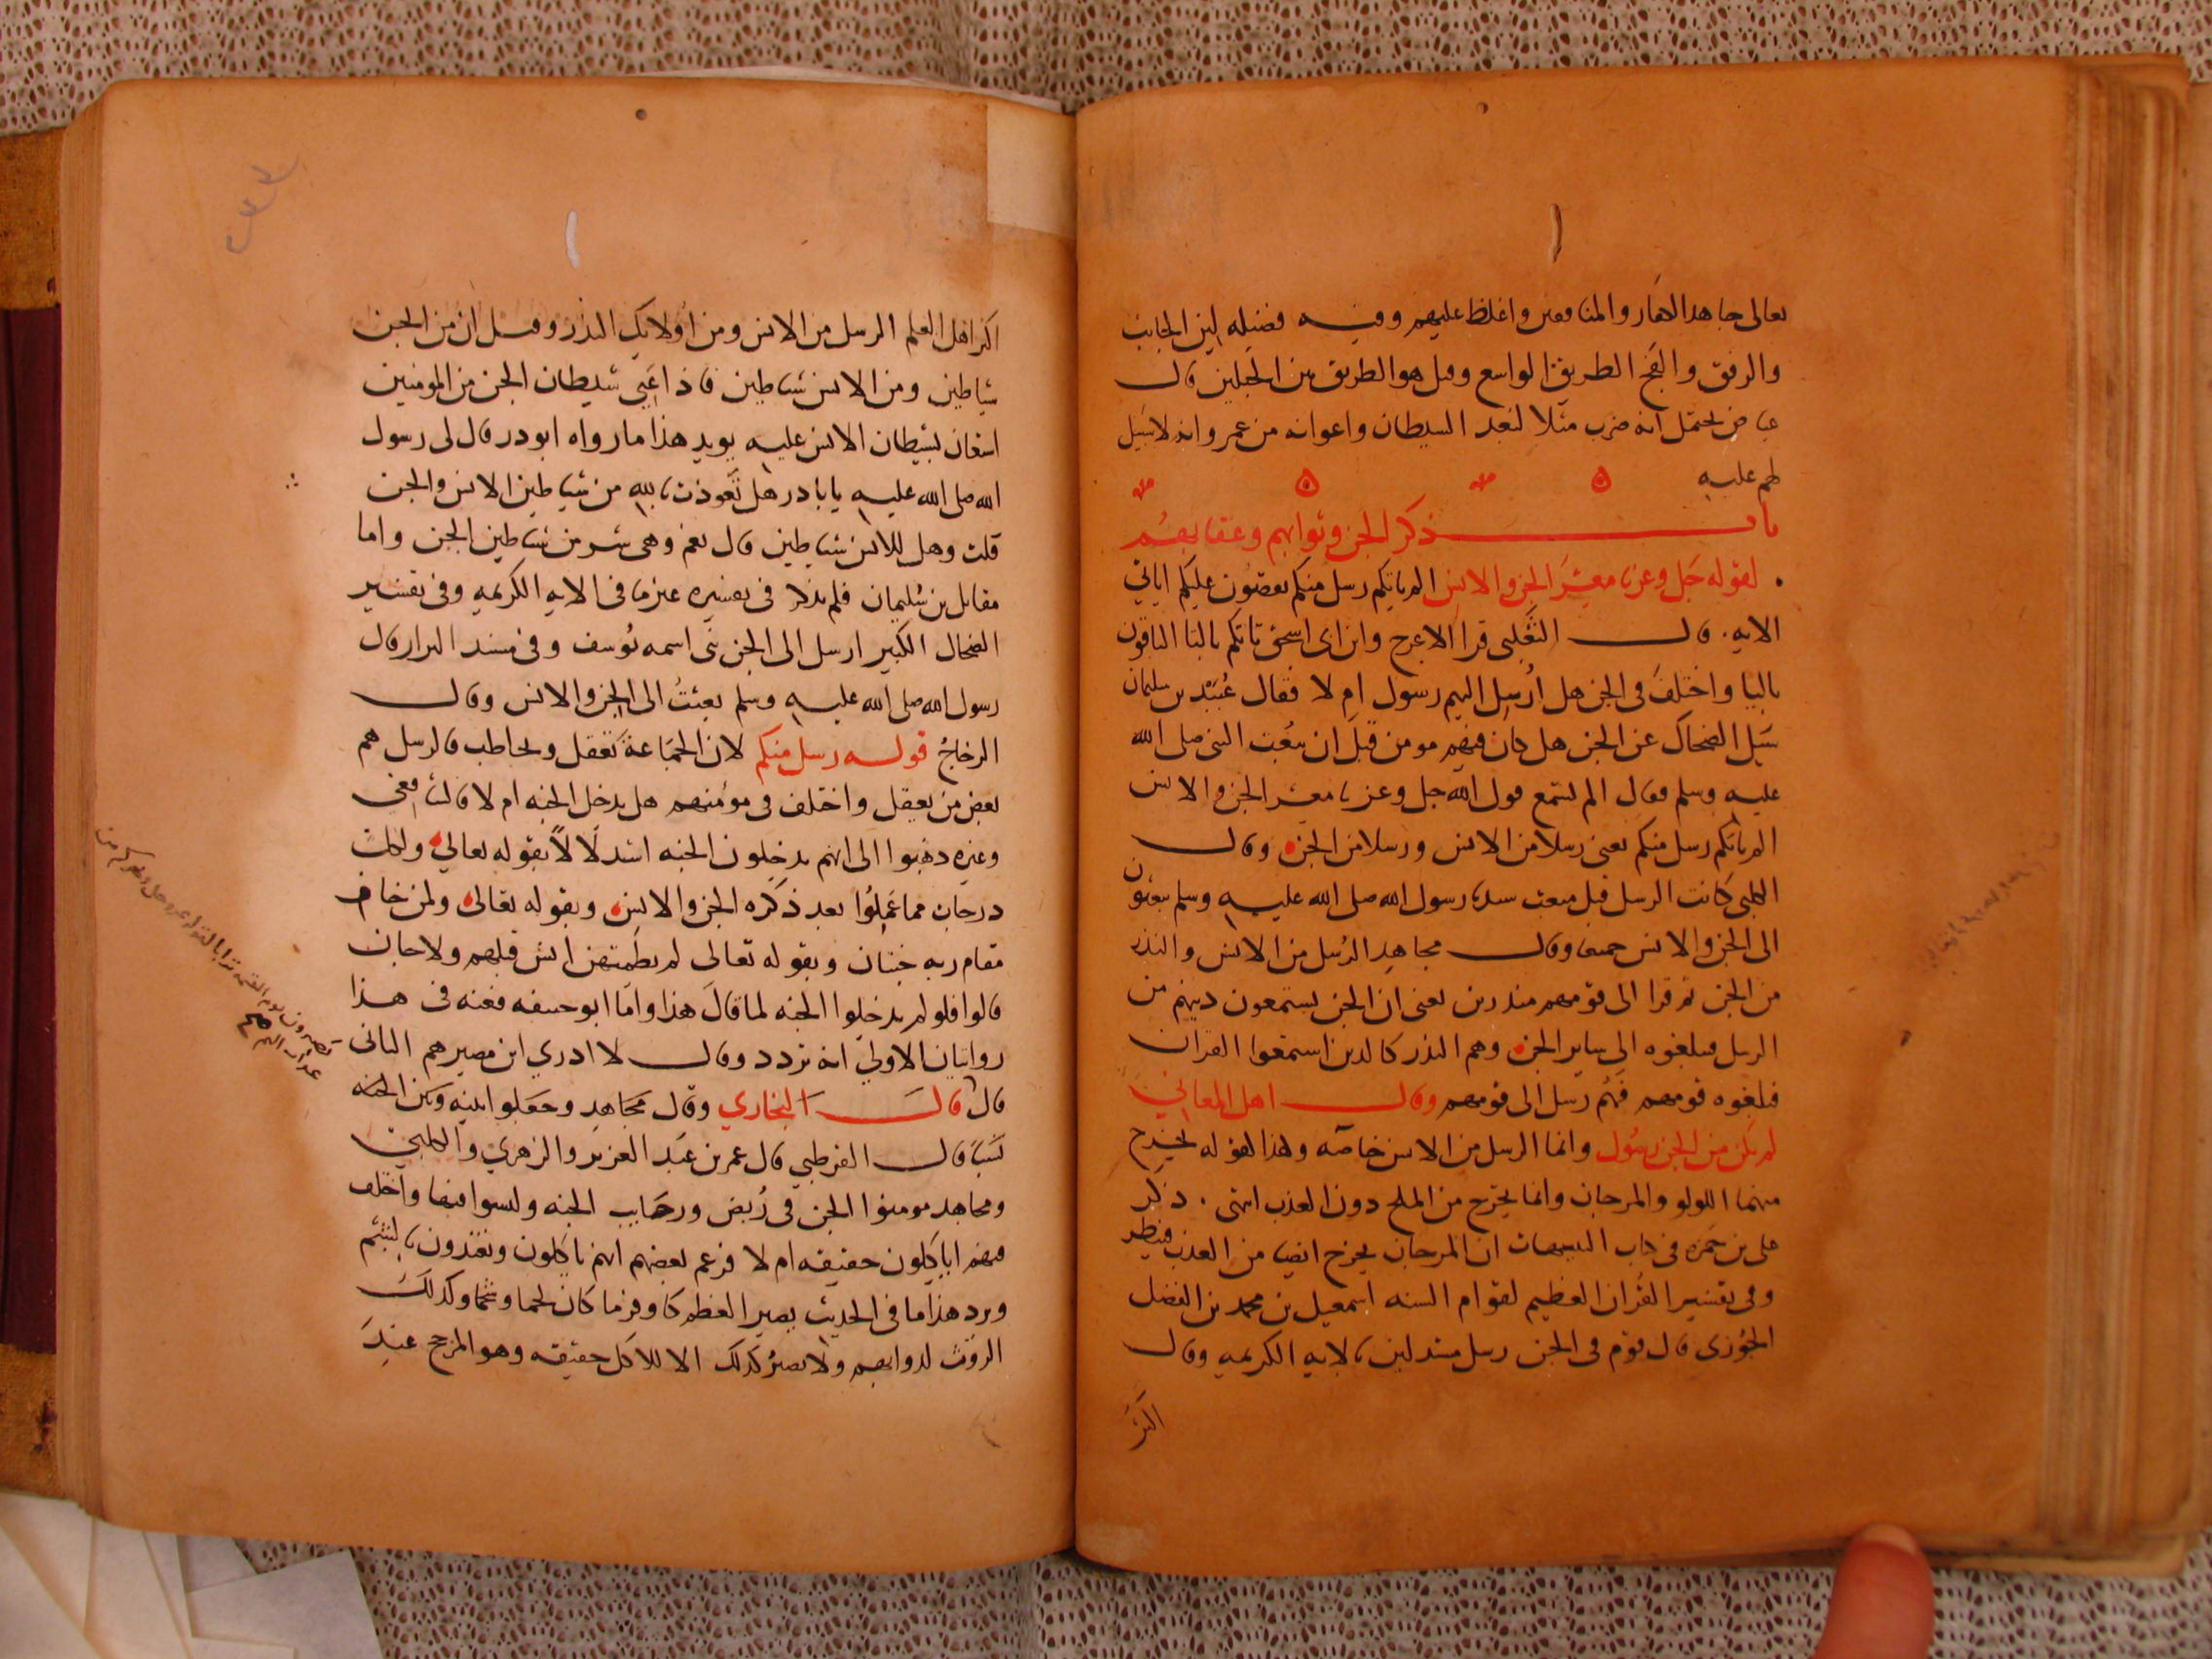 تعالى جاهد الكفار والمنافقين واغلظ عليهم وفيه فضيله لين الجانب
والرفق والفج الطريق الواسع وقيل هو الطريق بين الجبلين قال
عياض يحتمل انه ضرب مثلا لبعد الشيطان واعوانه من عمر وانه لا سبيل
لهم عليه
باب ذكر الجن وثوابهم وعقابهم
لقوله جل وعز يا معشر الجن والانس الم ياتكم رسل منكم يقصون عليكم اياتي
الايه قال الثعلبي قرا الاعرج وابن ابي اسحق تاتكم بالتا الباقون
باليا واختلف في الجن هل ارسل اليهم رسول ام لا فقال عبيد بن سليمان
سيل الضحاك عن الجن هل كان فيهم مومن قبل ان يبعث النبي صلى الله
عليه وسلم فقال الم تسمع قول الله جل وعز يا معشر الجن والانس
الم ياتكم رسل منكم يعني رسلا من الانس ورسلا من الجن وقال
الكلبي كانت الرسل قبل مبعث سيدنا رسول الله صلى الله عليه وسلم يبعثون
الى الجن والانس جميعا وقال مجاهد الرسل من الانس والنذر
من الجن ثم قرا الى قومهم منذرين يعني ان الجن يستمعون دينهم من
الرسل فيبلغوه الى ساير الجن وهم النذر كالذين استمعوا القران
فبلغوه قومهم فهم رسل الى قومهم وقال اهل المعاني
لم يكن من الجن رسول وانما الرسل من الانس خاصه وهذا لقوله يخرج
منهما اللولو والمرجان وانما يخرج من الملح دون العذب انتهى . ذكر
علي بن حمزه في كتاب التنبيهات ان المرجان يخرج ايضا من العذب فينظر
وفي تفسير القران العظيم لقوام السنه اسمعيل بن محمد بن الفضل
الجوزي قال قوم في الجن رسل مستدلين بالايه الكريمه وقال
اكثر
اكثر اهل العلم الرسل من الانس ومن اولايك النذر وقيل ان من الجن
شياطين ومن الانس شياطين فاذا اعيى شيطان الجن من المومنين
استعان بشيطان الانس عليه يويد هذا ما رواه ابو ذر قال لي رسول
الله صلى الله عليه يا با ذر هل تعوذت بالله من شياطين الانس والجن
قلت وهل للانس شياطين قال نعم وهي شر من شياطين الجن واما
مقاتل بن سليمان فلم يذكر في تفسيره غير ما في الايه الكريمه وفي تفسير
الضحاك الكبير ارسل الى الجن نبي اسمه يوسف وفي مسند البزار قال
رسول الله صلى الله عليه وسلم بعثت الى الجن والانس وقال
الزجاج قوله رسل منكم لان الجماعة تعقل وتخاطب فالرسل هم
بعض من يعقل واختلف في مومنهم هل يدخل الجنه ام لا فالشافعي
وغيره ذهبوا الى انهم يدخلون الجنه استدلالا بقوله تعالى ولكل
درجات مما عملوا بعد ذكره الجن والانس وبقوله تعالى ولمن خاف
مقام ربه جنتان وبقوله تعالى لم يطمثهن انس قبلهم ولا جان
قالوا فلو لم يدخلوا الجنه لما قال هذا واما ابو حنيفه فعنه في هذا
روايتان الاولى انه تردد وقال لا ادري اين مصيرهم الثاني
قال قال البخاري وقال مجاهد وجعلوا بينه وبين الجنه
نسبا قال القرطبي قال عمر بن عبد العزيز والزهري والكلبي
ومجاهد مومنوا الجن في ربض ورحاب الجنه وليسوا فيها واختلف
فيهم اياكلون حقيقه ام لا فزعم بعضهم انهم ياكلون ويتغذون بالشم
ويرد هذا ما في الحديث يصير العظم كاوفر ما كان لحما وشحما وكذلك
الروث لدوابهم ولا يصير كذلك الا للاكل حقيقه وهو المرجح عند